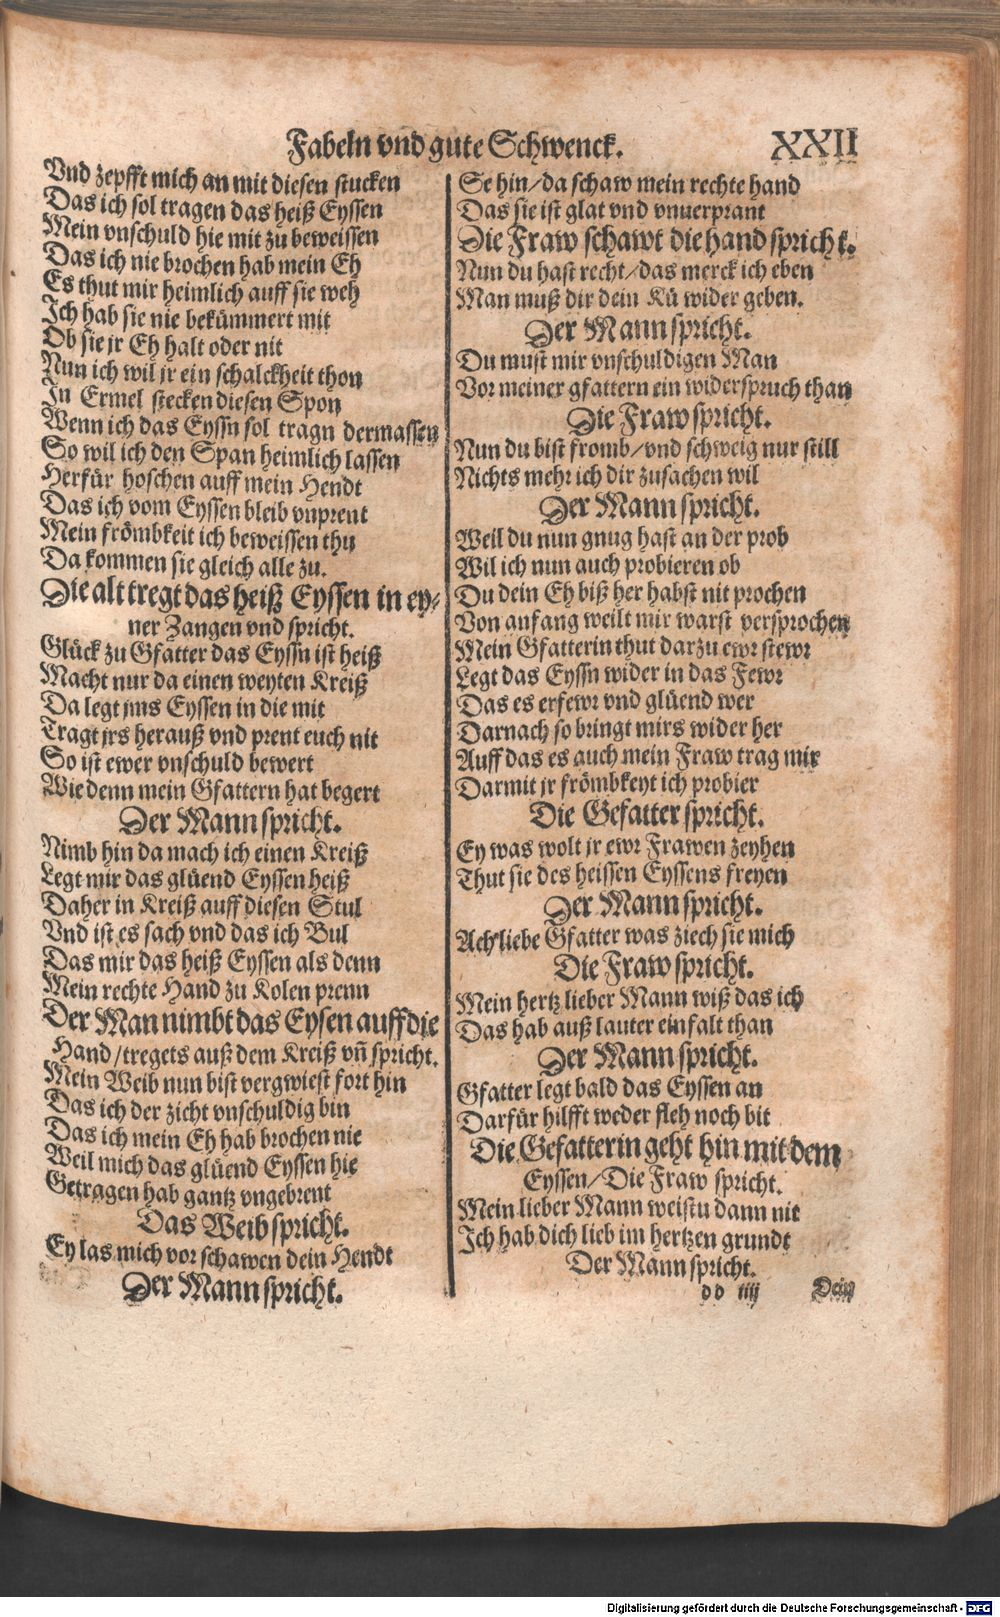 Fabeln vnd gute Schwenck.
XXII
Vnd zepfft mich an mit diesen stucken
Das ich sol tragen das heiß Eyssen
Mein vnschuld hie mit zu beweissen
Das ich nie brochen hab mein Eh
Es thut mir heimlich auff sie weh
Ich hab sie nie bekümmert mit
Ob sie jr Eh halt oder nit
Nun ich wil jr ein schalckheit thon
In Ermel stecken diesen Spon
Wenn ich das Eyssn sol tragn dermassen
So wil ich den Span heimlich lassen
Herfür hoschen auff mein Hendt
Das ich vom Eyssen bleib vnprent
Mein frömbkeit ich beweissen thu
Da kommen sie gleich alle zu.
Die alt tregt das heiß Eyssen in ey⸗
ner Zangen vnd spricht.
Glück zu Gfatter das Eyssn ist heiß
Macht nur da einen weyten Kreiß
Da legt jms Eyssen in die mit
Tragt jrs herauß vnd prent euch nit
So ist ewer vnschuld bewert
Wie denn mein Gfattern hat begert
Der Mann spricht.
Nimb hin da mach ich einen Kreiß
Legt mir das glüend Eyssen heiß
Daher in Kreiß auff diesen Stul
Vnd ist es sach vnd das ich Bul
Das mir das heiß Eyssen als denn
Mein rechte Hand zu Kolen prenn
Der Man nimbt das Eysen auff die
Hand/tregets auß dem Kreiß vn̄ spricht.
Mein Weib nun bist vergwiest fort hin
Das ich der zicht vnschuldig bin
Das ich mein Eh hab brochen nie
Weil mich das glüend Eyssen hie
Getragen hab gantz vngebrent
Das Weib spricht.
Ey las mich vor schawen dein Hendt
Der Mann spricht.
Se hin/da schaw mein rechte hand
Das sie ist glat vnd vnuerprant
Die Fraw schawt die hand spricht.
Nun du hast recht/das merck ich eben
Man muß dir dein Kü wider geben.
Der Mann spricht.
Du must mir vnschuldigen Man
Vor meiner gfattern ein widerspruch than
Die Fraw spricht.
Nun du bist fromb/vnd schweig nur still
Nichts mehr ich dir zusachen wil
Der Mann spricht.
Weil du nun gnug hast an der prob
Wil ich nun auch probieren ob
Du dein Eh biß her habst nit prochen
Von anfang weilt mir warst versprochen
Mein Gfatterin thut darzu ewr stewr
Legt das Eyssn wider in das Fewr
Das es erfewr vnd glüend wer
Darnach so bringt mirs wider her
Auff das es auch mein Fraw trag mir
Darmit jr frömbkeyt ich probier
Die Gefatter spricht.
Ey was wolt jr ewr Frawen zeyhen
Thut sie des heissen Eyssens freyen
Der Mann spricht.
Ach liebe Gfatter was ziech sie mich
Die Fraw spricht.
Mein hertz lieber Mann wiß das ich
Das hab auß lauter einfalt than
Der Mann spricht.
Gfatter legt bald das Eyssen an
Darfür hilfft weder fleh noch bit
Die Gefatterin geht hin mit dem
Eyssen/Die Fraw spricht.
Mein lieber Mann weistu dann nit
Ich hab dich lieb im hertzen grundt
Der Mann spricht.
dd iiij
Dein
Digitalisierung gefördert durch die Deutsche Forschungsgemeinschaft - DFG